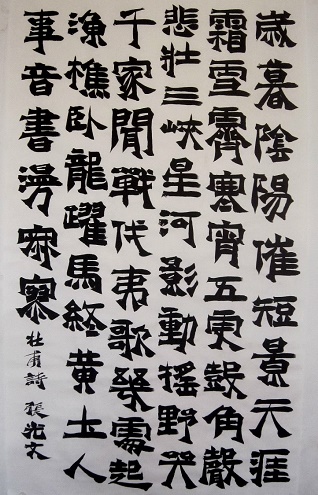 歲暮陰陽催短景天涯
霜雪霽寒宵五更鼓角聲
悲壯三峽星河影動搖野哭
千家聞戰伐夷歌幾處起
漁樵臥龍躍馬終黃土人
事音書漫寂寥
杜甫詩 張光文